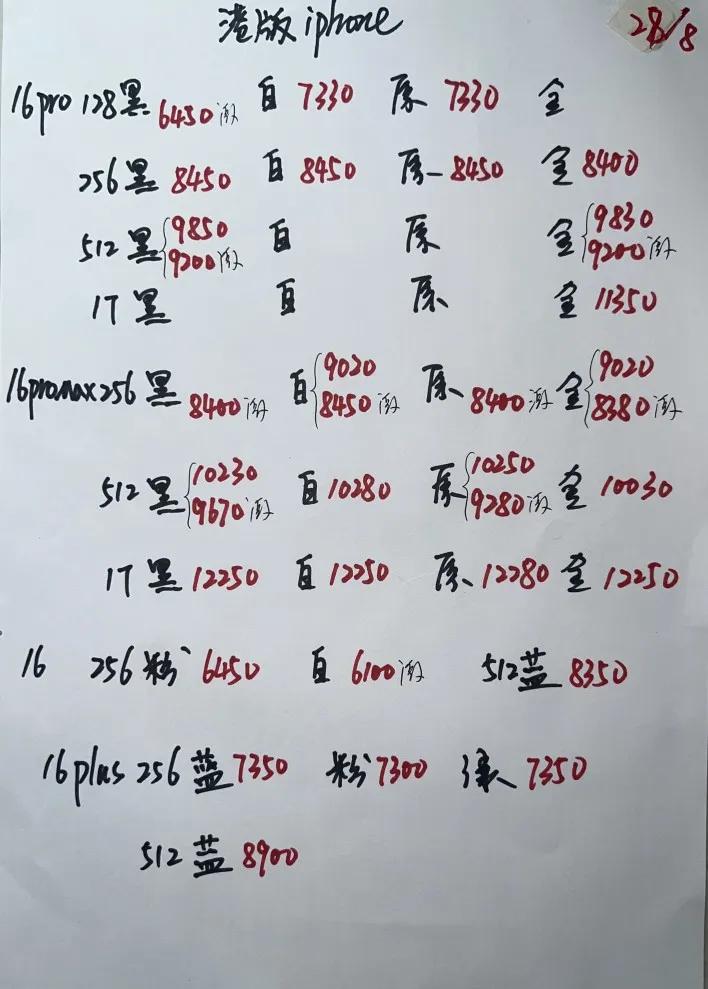 港版iphone
28/8
16pro 128黑 6450激 白 7330 原 7330 金
256黑 8450 白 8450 原 8450 金 8400
512黑 9850 9200激 白 原 金 9830 9200激
1T 黑 白 原 金 11350
16promax256 黑 8400激 白 9020 8450激 原 8400激 金 9020 8380激
512黑 10230 9670激 白 10280 原 10250 9280激 金 10030
1T 黑 12250 白 12250 原 12280 金 12250
16 256粉 6450 白 6100激 512蓝 8350
16plus 256 蓝 7350 粉 7300 绿 7350
512蓝 8900